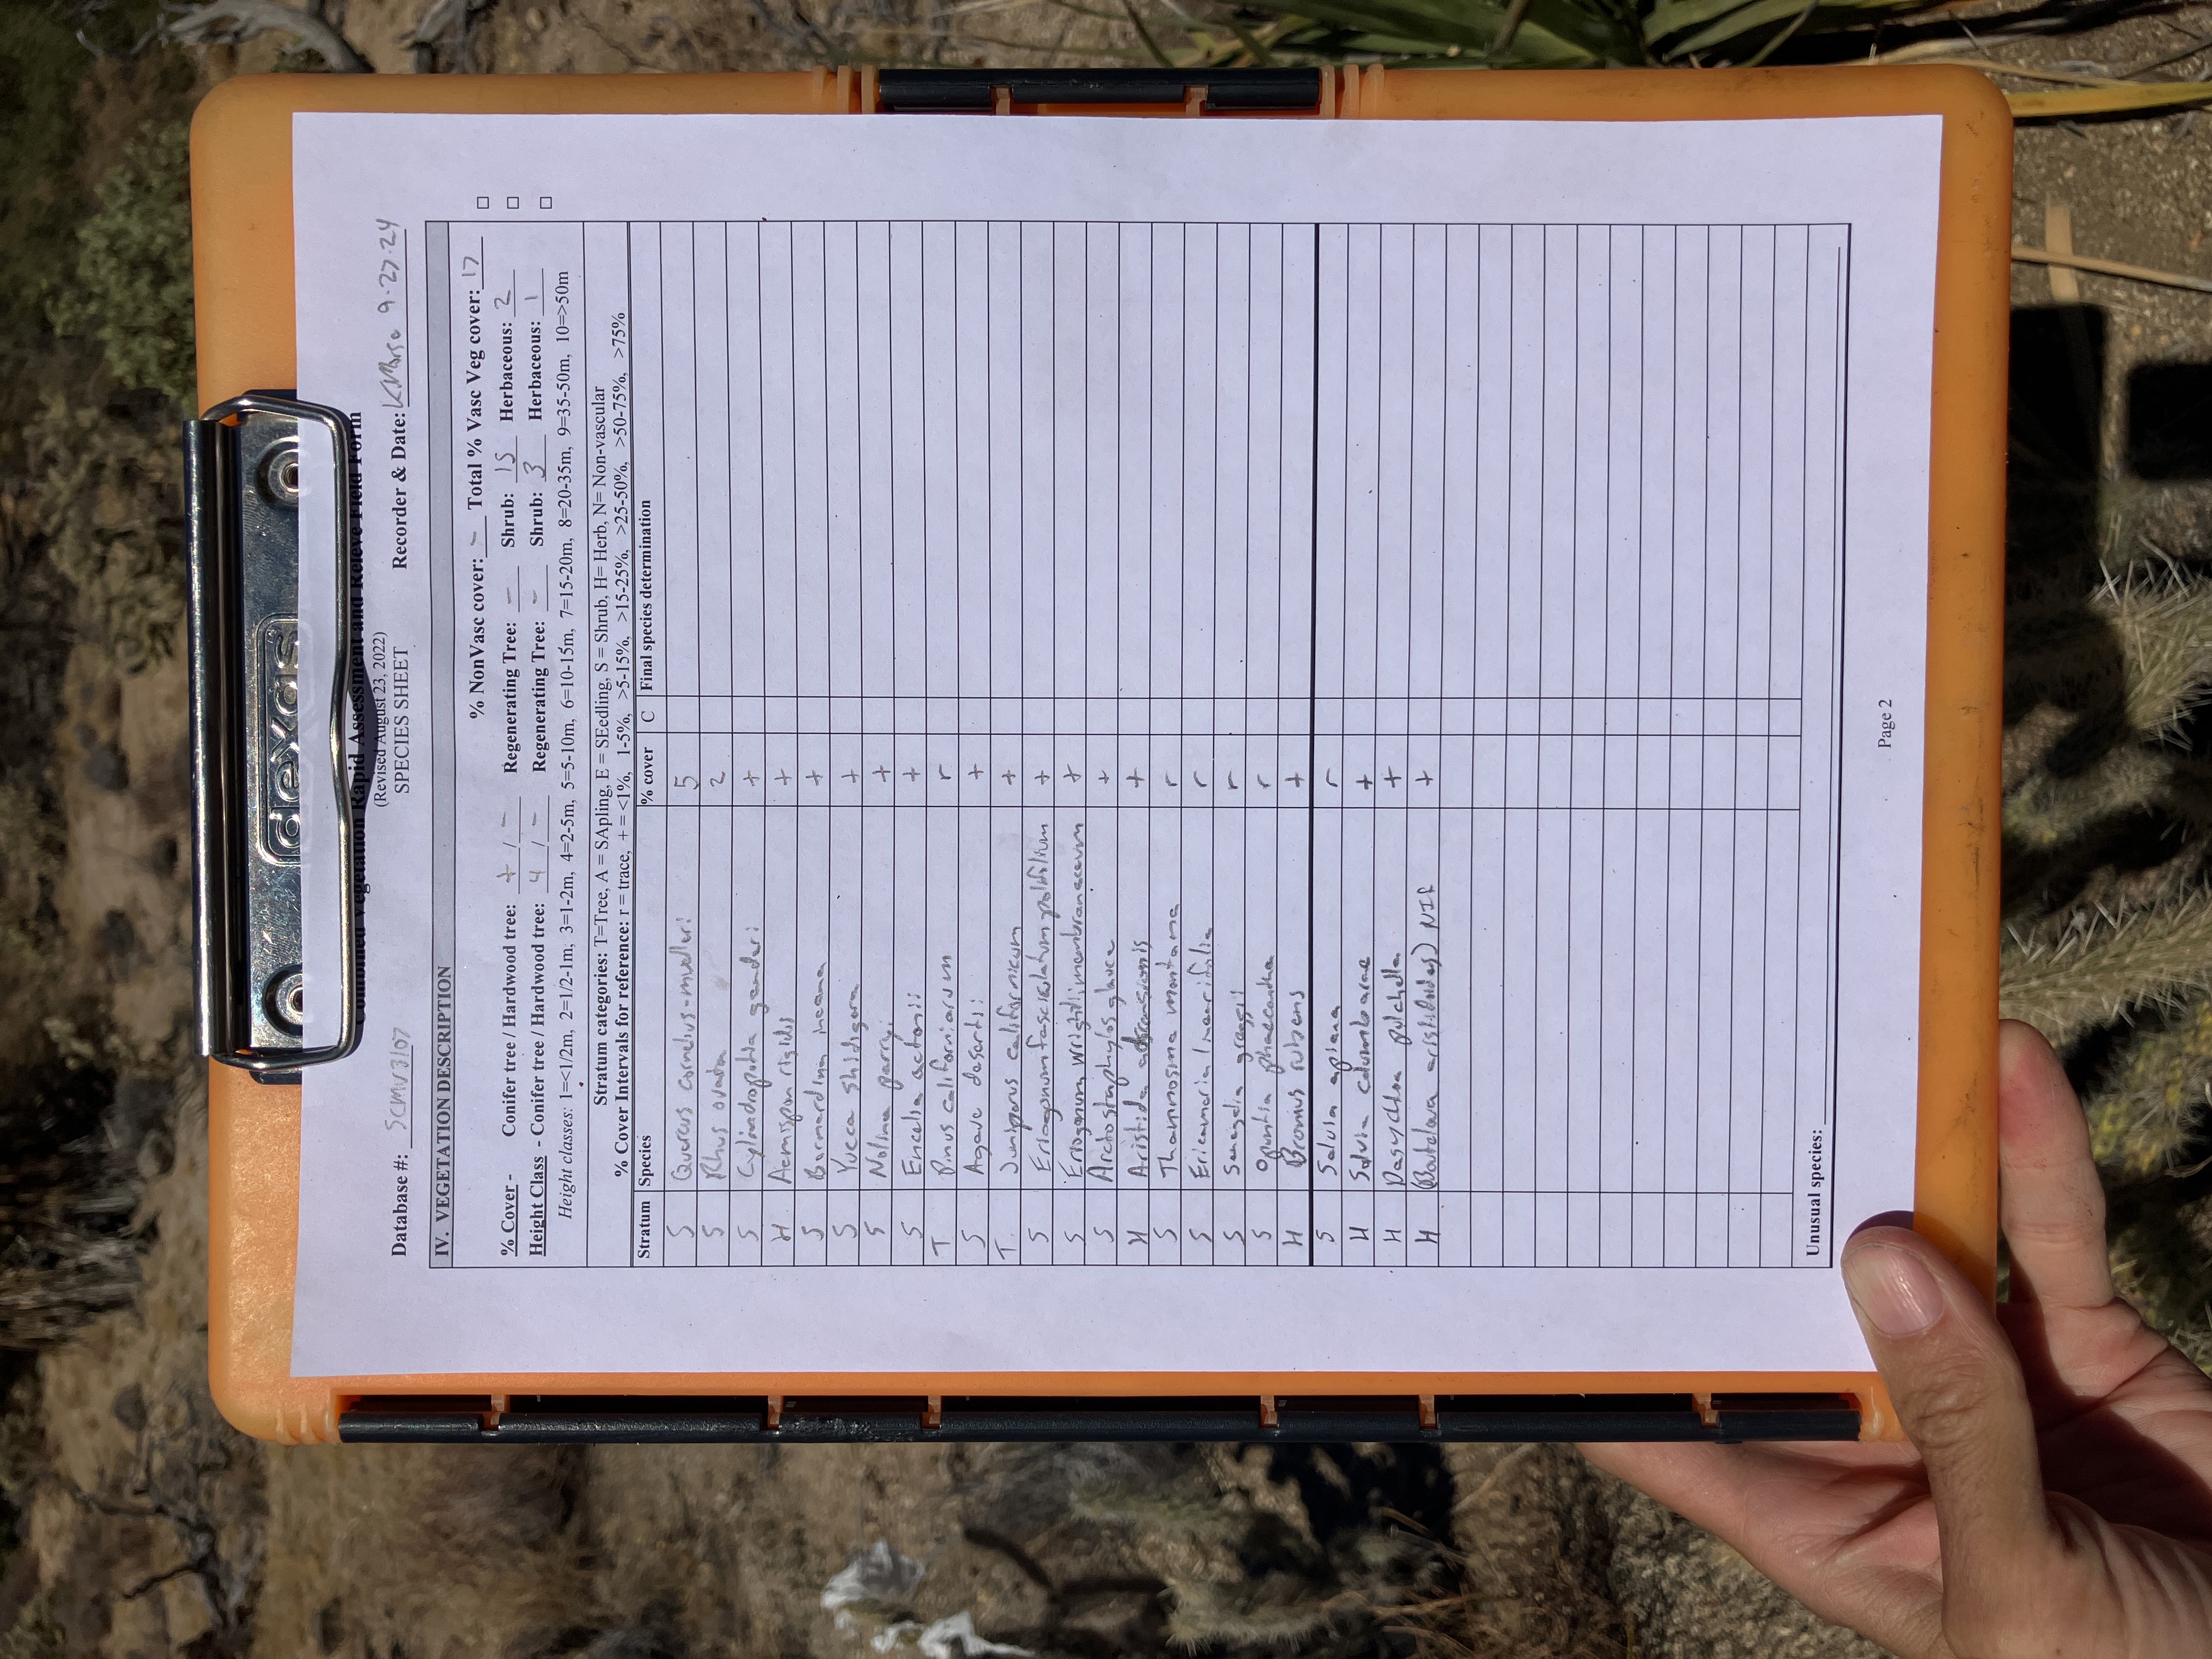 dexas
Combined Vegetation Rapid Assessment and Relevé Field Form
(Revised August 23, 2022)
SPECIES SHEET
Database #: SCMV3107 Recorder & Date: 9-27-24
IV. VEGETATION DESCRIPTION
% NonVasc cover: - Total % Vasc Veg cover: 17
% Cover - Conifer tree / Hardwood tree: + / - Regenerating Tree: - Shrub: 15 Herbaceous: 2
Height Class - Conifer tree / Hardwood tree: 4 / - Regenerating Tree: - Shrub: 3 Herbaceous: 1
Height classes: 1=<1/2m, 2=1/2-1m, 3=1-2m, 4=2-5m, 5=5-10m, 6=10-15m, 7=15-20m, 8=20-35m, 9=35-50m, 10=>50m
Stratum categories: T=Tree, A = SApling, E = SEedling, S = Shrub, H= Herb, N= Non-vascular
% Cover Intervals for reference: r = trace, + = <1%, 1-5%, >5-15%, >15-25%, >25-50%, >50-75%, >75%
Stratum Species % cover C Final species determination
S Quercus cornelius-mulleri 5
S Rhus ovata 2
S Cylindropuntia ganderi +
H Acmispon rigidus +
S Bernardina incana +
S Yucca shidigera +
S Nolina parryi +
S Encelia actonii +
T Pinus californiarum r
S Agave desertii +
T Juniperus californicum +
S Eriogonum fasciculatum polifolium +
S Eriogonum wrightii membranaceum +
S Arctostaphylos glauca +
H Aristida +
S Thamnosma montana r
S Ericameria linearifolia r
S Senegalia greggii r
S Opuntia phaeacantha r
H Bromus rubens +
S Salvia apiana r
H Salvia columbarae +
H Dasychloa pulchella +
H (Bouteloua aristidoides) NIP +
Unusual species:
Page 2